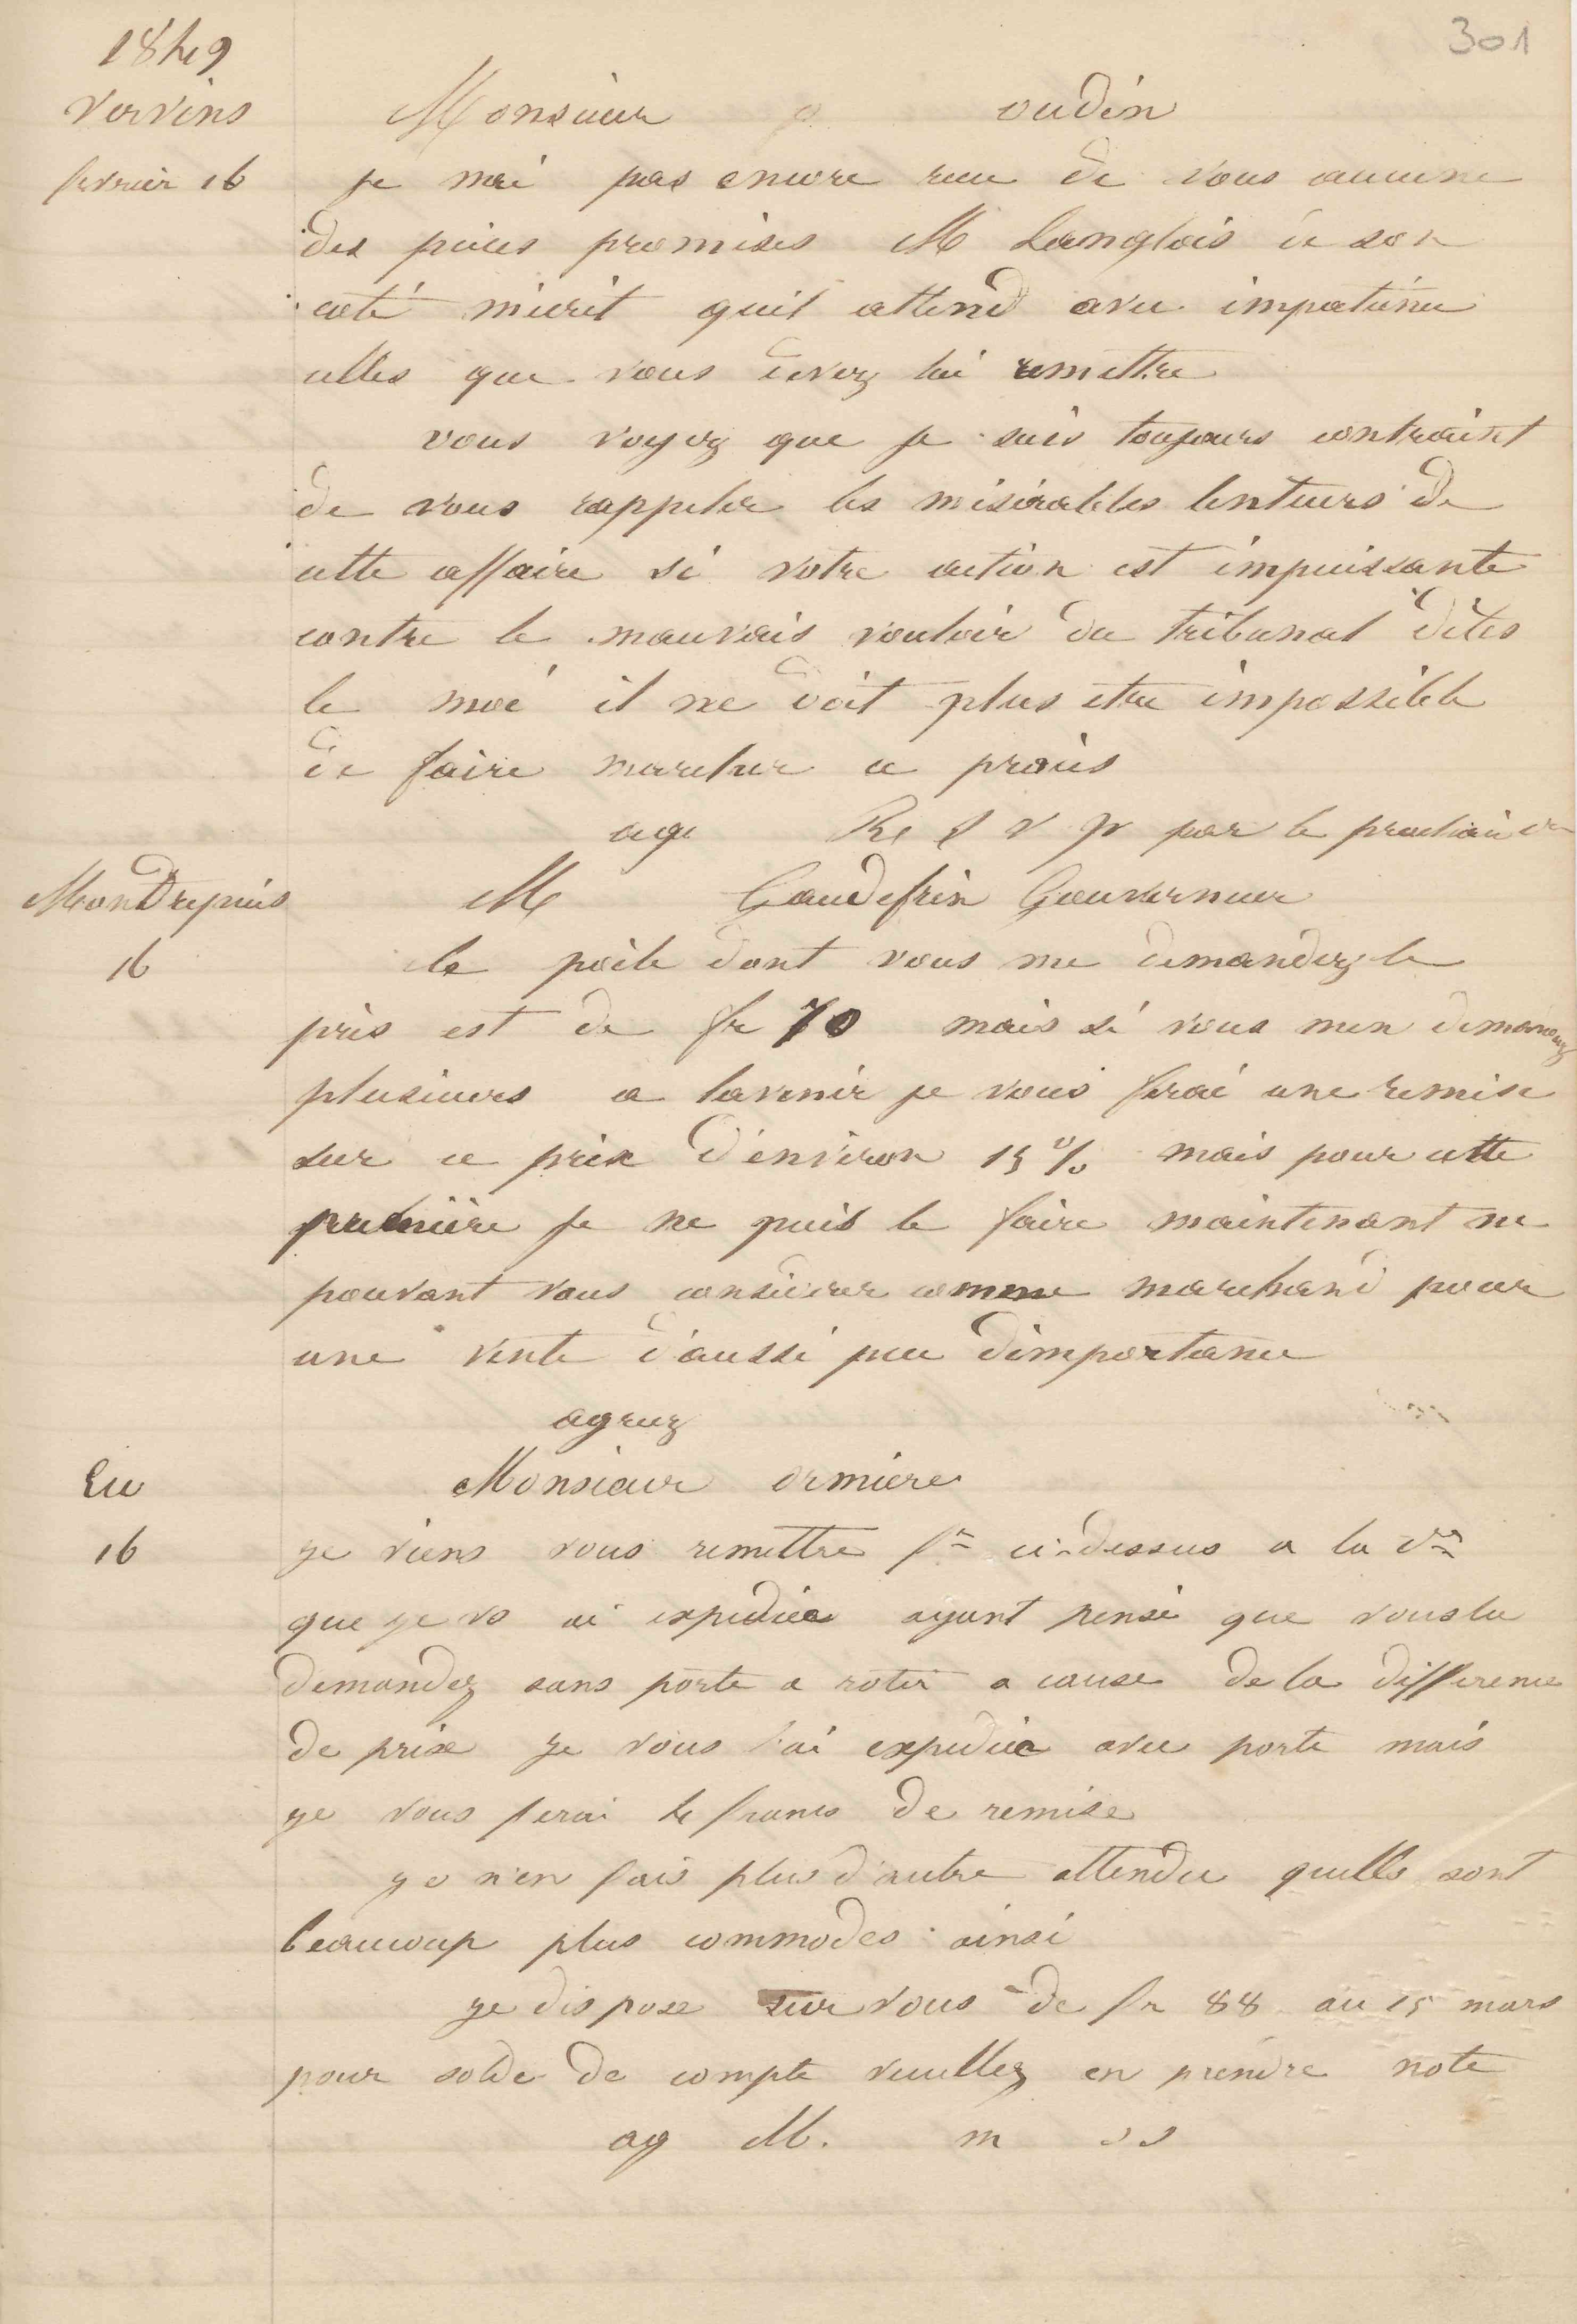 301
1849
Vervins
fevrier 16
Monsieur oudin
je nai pas encore recu de vous aucune
des pieces promises M Langlois de son
coté mecrit quil attend avec impatience
celles que vous devez lui remettre
vous voyez que je suis toujours contraint
de vous rappeler les miserables lenteurs de
cette affaire si votre action est impuissante
contre le mauvais vouloir du tribunal dites
le moi il ne doit plus etre impossible
de faire marcher ce procès
age R S V P par le prochain
Mondrepuis
16
M Gaudefrin Gouverneur
le poele dont vous me demandez le
prix est de fr 70 mais si vous men demandez
plusieurs a lavenir je vous ferai une remise
sur ce prix d'environ 15 % mais pour cette
première je ne puis le faire maintenant ne
pouvant vous considerer comme marchand pour
une vente d'aussi peu dimportance
agreez
Eu
16
Monsieur ormiere
je viens vous remettre fre ci-dessus a la cre
que je vs ai expediée ayant pensé que vous la
demandez sans porte a rotir a cause de la difference
de prix je vous l'ai expediée avec porte mais
je vous ferai 4 francs de remise
je n'en fais plus d'autre attendu quelles sont
beaucoup plus commodes ainsi
je dispose sur vous de fr 88 au 15 mars
pour solde de compte veuillez en prendre note
ag M. m